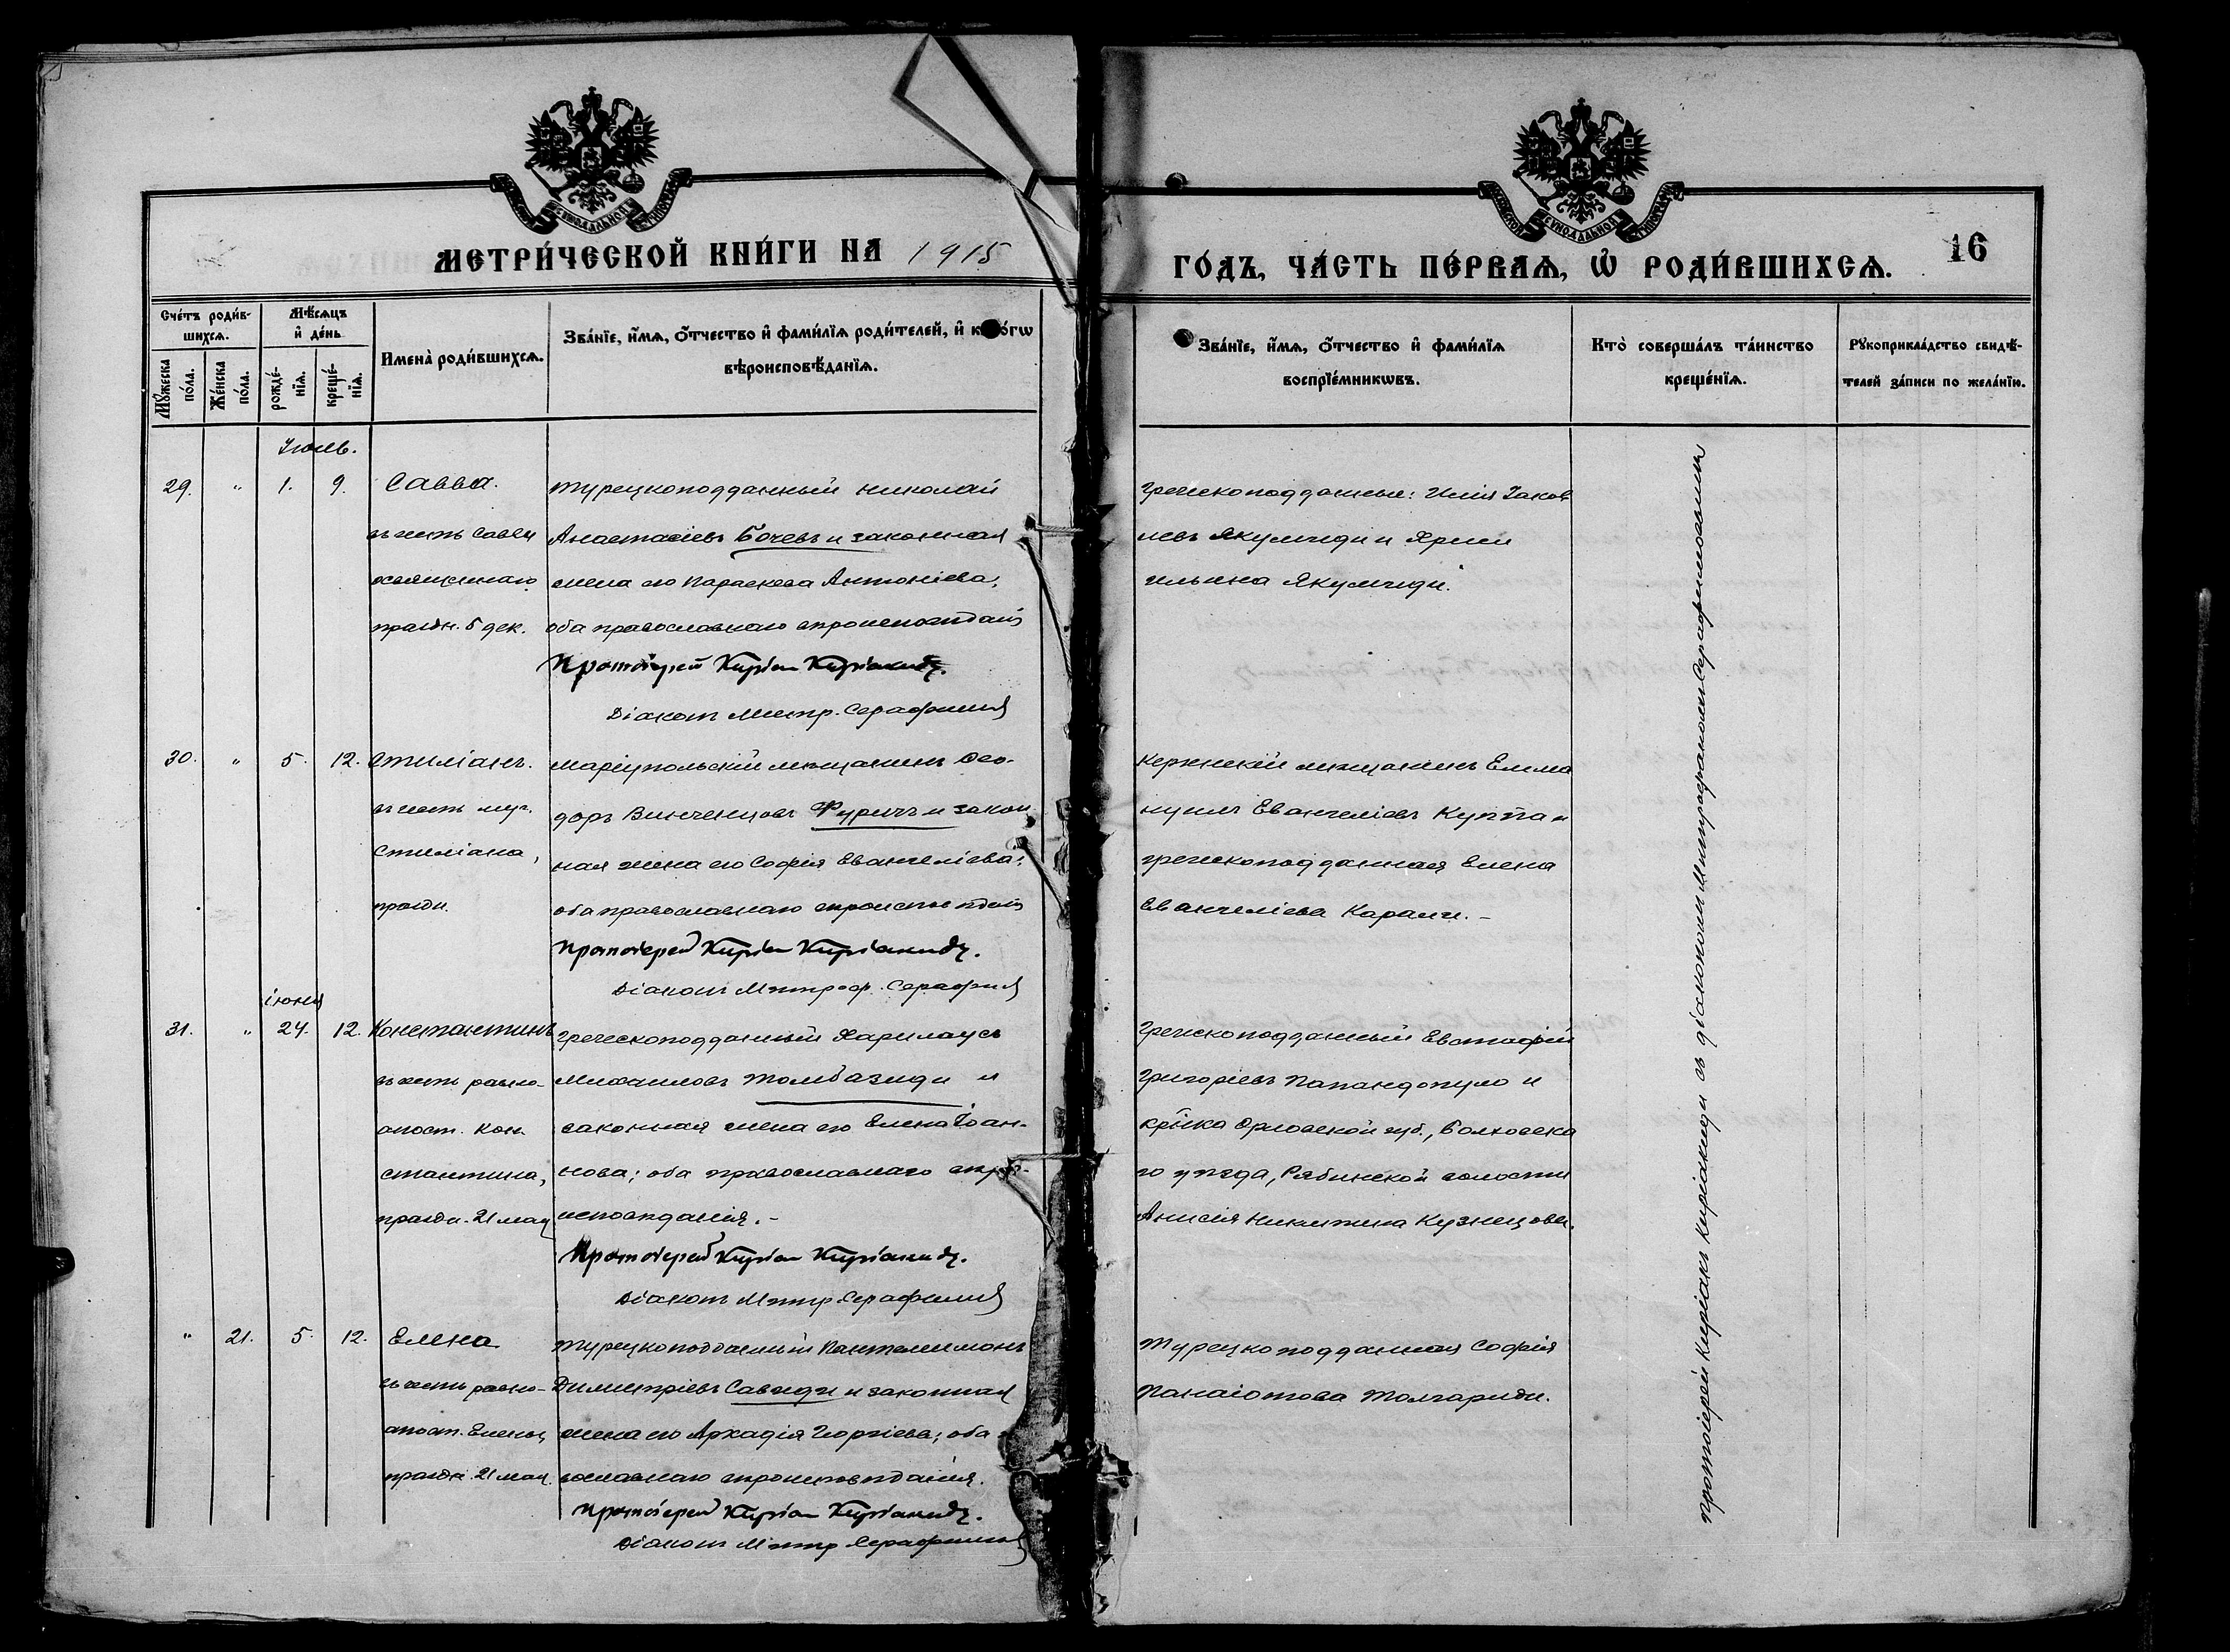 МЕТРИ́ЧЕСКОЙ КНИ́ГИ НА 1915
ГО́ДЪ, ЧА́СТЬ ПЕ́РВАѦ, Ѽ РОДИ́ВШИХСѦ.
16
Сче́тъ роди́в-
шихсѧ.
Мѣ́сѧцъ
и҆ де́нь
Мꙋ́жеска
по́ла.
Же́нска
по́ла.
рожде́-
нїѧ.
креще́-
нїѧ.
Имена̀ роди́вшихсѧ.
Зва́нїе, и҆́мѧ, ѻ҆́тчество и҆ фами́лїѧ роди́телей, и҆ к о́гѡ
вѣроисповѣ́данїѧ.
Зва́нїе, и҆́мѧ, ѻ҆́тчество и҆ фами́лїѧ
воспрїе́мникѡвъ.
Кто̀ соверша́лъ та́инство
креще́нїѧ.
Рꙋкоприкла́дство свидѣ́-
телей за́писи по жела́нїю.
Іюль.
29. " 1. 9. Савва.
въ честь Саввы
освященнаго
праздн. 5 дек.
Турецкоподданный Николай
Анастасіевъ Бочевъ и законная
жена его Параскева Антоніева;
оба православнаго вѣроисповѣданія
Протоіерей Киріак Киріакиди.
Діаконъ Митр. Серафимов
Греческоподданные: Илія Іаков
левъ Якумиди и
Ильина Якумиди.
30. " 5. 12. Стиліанъ.
въ честь муч.
Стиліана,
праздн.
Маріупольскій мѣщанинъ Ѳео-
доръ Винченцовъ Фуричъ и закон
ная жена его Софія Евангеліева;
оба православнаго вѣроисповѣданія
Протоіерей Киріак Киріакиди.
Діаконъ Митроф. Серафимов
Керченскій мѣщанинъ Емма
нуилъ Евангеліевъ Куппа и
греческоподданная Елена
Евангеліева Карали. –
іюня
31. " 24. 12. Константинъ
въ честь равно-
апост. Кон
стантина,
праздн. 21 мая
Греческоподданный Харилаусъ
Михаиловъ Томбазиди и
законная жена его Елена Іоан-
нова; оба православнаго вѣро-
исповѣданія. –
Протоіерей Киріак Киріакиди.
Діаконъ Митр. Серафимов
Греческоподданный Евстафій
Григоріевъ Папандопуло и
кр-ка Орловской губ., Болховска
го уѣзда, Рябинской волости
Анисія Никитина Кузнецова.
" 21. 5. 12. Елена
въ честь равно-
апост. Елены,
праздн. 21 мая.
Турецкоподданный Пантелеимонъ
Димитріевъ Савиди и законная
жена его Аркадія Георгіева; оба
вославнаго вѣроисповѣданія.
Протоіерей Киріак Киріакиди.
Діаконъ Митр. Серафимов
Турецкоподданная Софія
Панаіотова Толгариди.
Протоіерей Киріакъ Киріакиди съ діакономъ Митрофаномъ Серафимовымъ